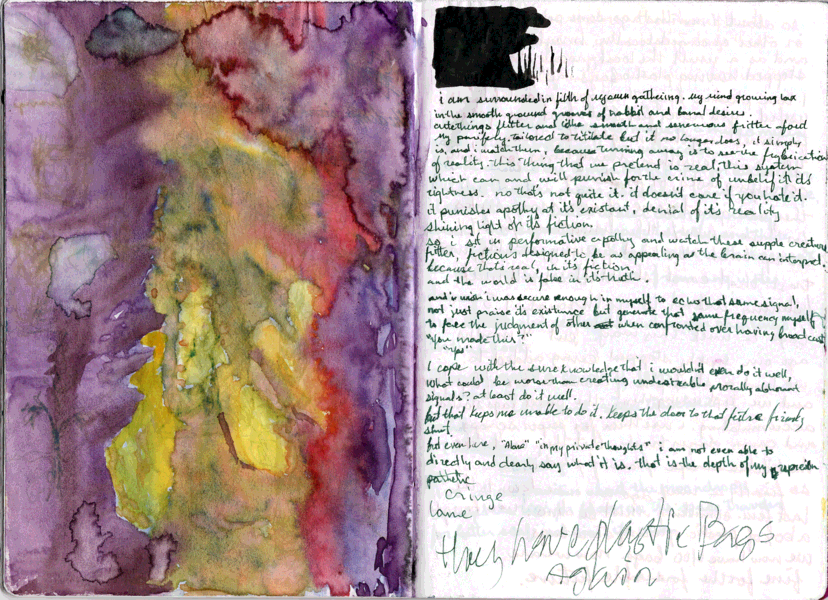 i am surrounded in filth of my own gathering. my mind growing lax
in the smooth ground grooves of habbit and banal desire.
cutethings flitter and like a small and sensuous fritter afoul
my purifely tailored to titilate but it no longer does, it simply
is, and i watch them, because turning away is to see the fabrication
of reality. this thing that we pretend is real, this system
which can and will punish for the crime of unbelif it it's
rightness. no that's not quite it. it doesn't care if you hate'd.
it punishes apathy at it's existant, denial of it's reality
shining light on its fiction.
so i sit in performative apathy and watch these supple creatures
flitter, fictions designed to be as appealing as the brain can interpret.
because that's real, in its fiction.
and the world is fake in its truth.
and i wish i was secure enough in myself to echo that same signal,
not just praise it's existance but generate that same frequency myself
to face the judgment of other when confronted over having broadcast
"you made this?"
"yes"
I cope with the sure knowledge that i wouldn't even do it well,
what could be worse than creating undesirable morally abhorant
signals? at least do it well.
but that keeps me unable to do it. keeps the door to that future firmly
shut.
but even here, "Alone" "in my private thoughts" i am not even able to
directly and clearly say what it is, that is the depth of my repression
pathetic
cringe
lame
they have plastic Bags
Again